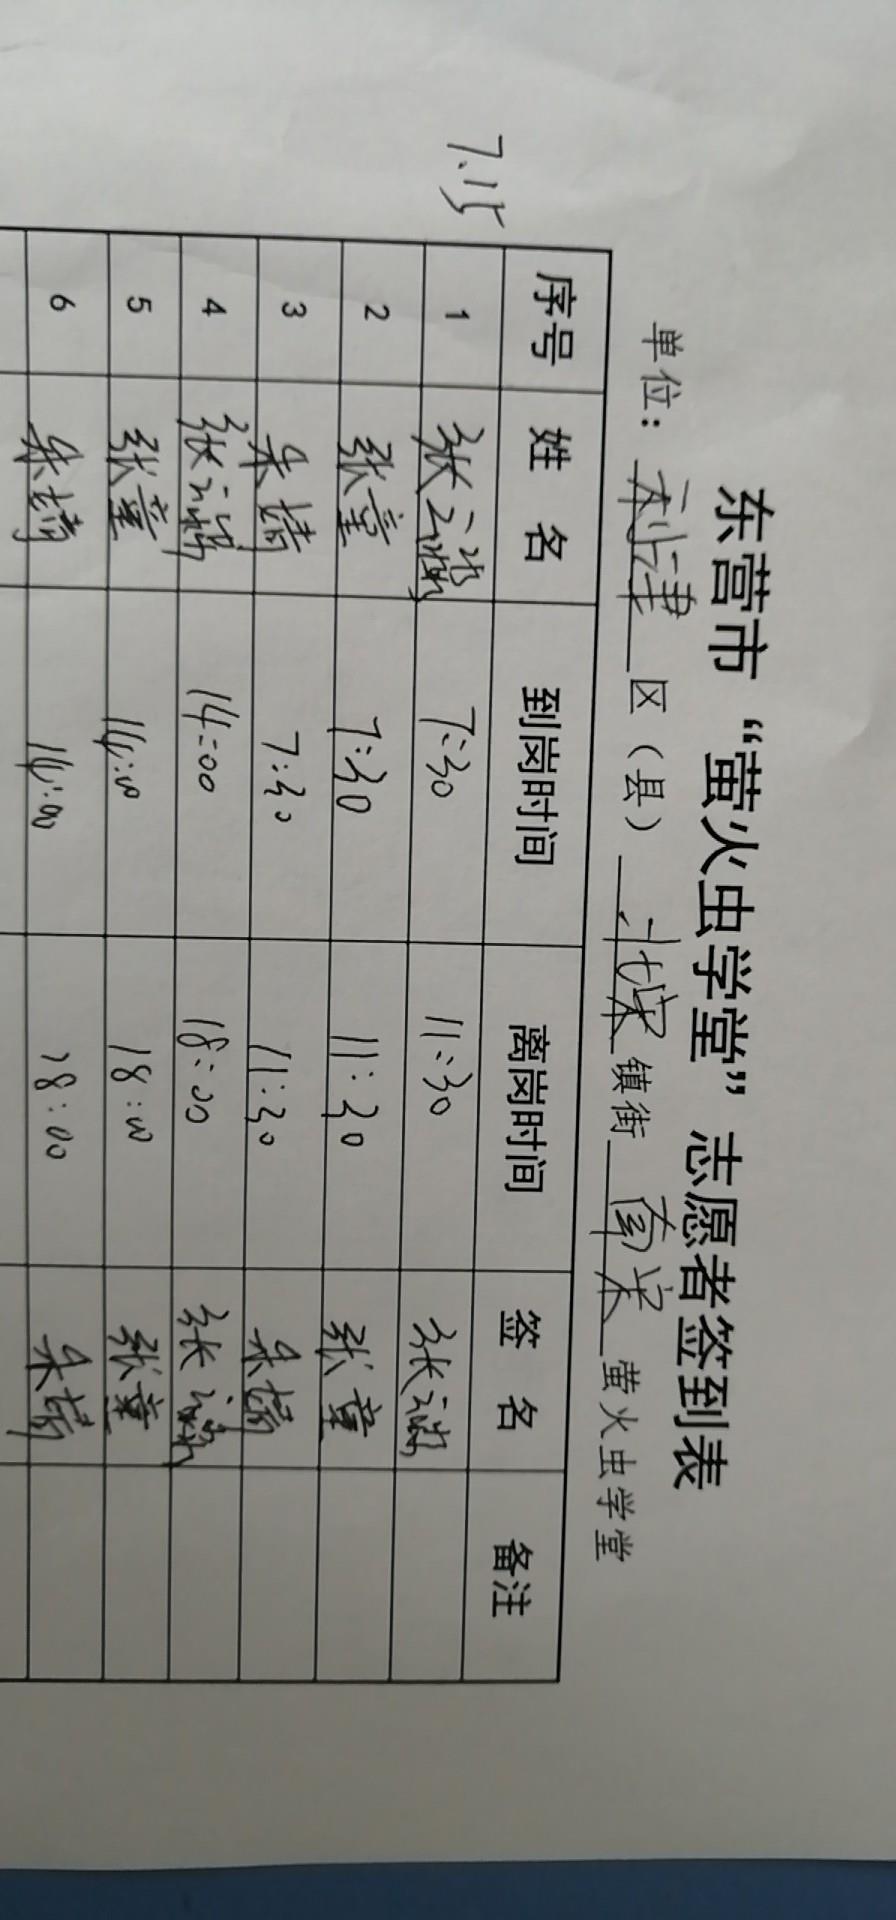 东营市“萤火虫学堂”志愿者签到表
单位：利津区（县）北宋镇街南宋萤火虫学堂
7.15
序号 姓名 到岗时间 离岗时间 签名 备注
1 张 7:30 11:30 张
2 张童 7:30 11:30 张童
3 朱倩 7:30 11:30 朱倩
4 张 14:00 18:00 张
5 张童 14:00 18:00 张童
6 朱倩 14:00 18:00 朱倩